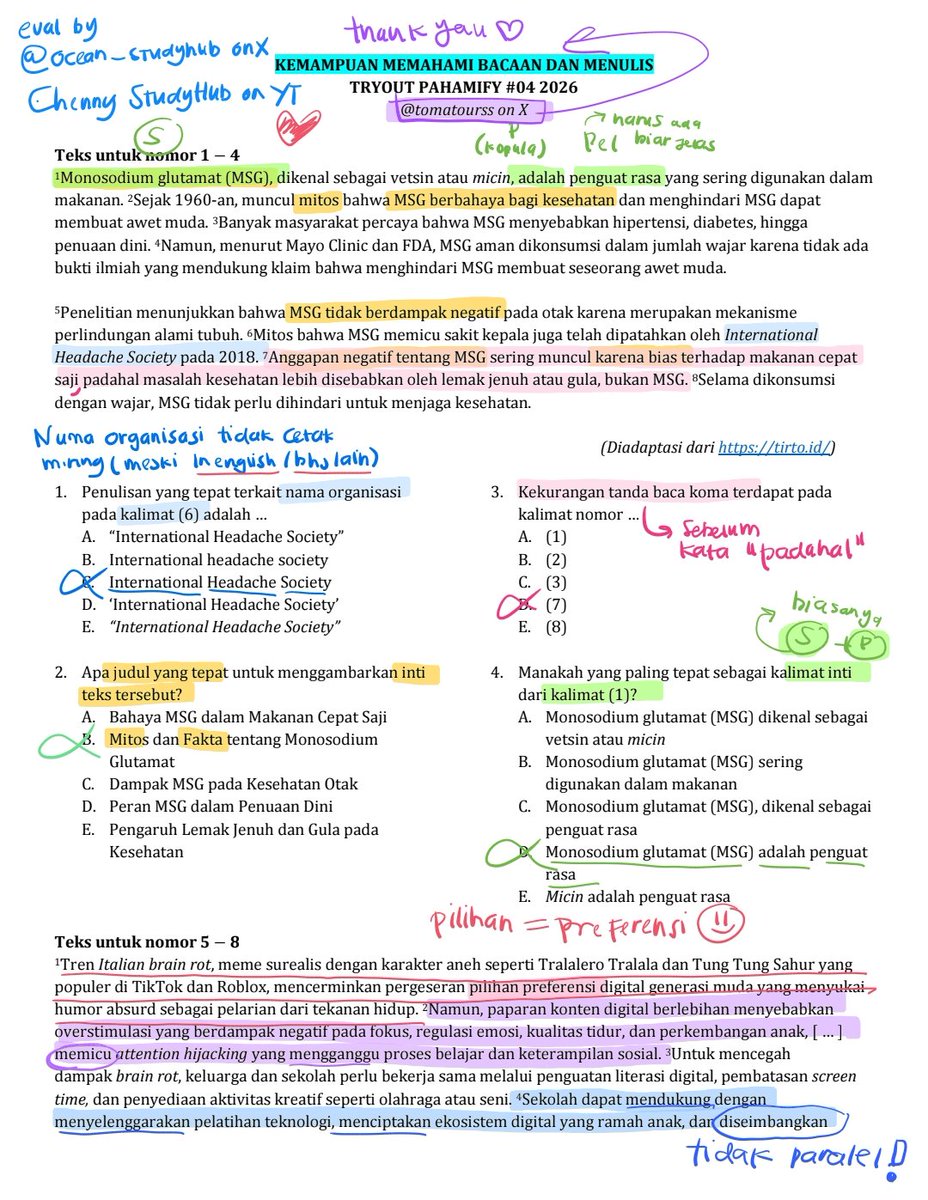 eval by
@ocean_studyhub on X
Chenny StudyHub on YT
thank you
KEMAMPUAN MEMAHAMI BACAAN DAN MENULIS
TRYOUT PAHAMIFY #04 2026
@tomatourss on X
S
P
(kopula)
harus ada
Pel biar jelas
Teks untuk nomor 1 – 4
¹Monosodium glutamat (MSG), dikenal sebagai vetsin atau micin, adalah penguat rasa yang sering digunakan dalam
makanan. ²Sejak 1960-an, muncul mitos bahwa MSG berbahaya bagi kesehatan dan menghindari MSG dapat
membuat awet muda. ³Banyak masyarakat percaya bahwa MSG menyebabkan hipertensi, diabetes, hingga
penuaan dini. ⁴Namun, menurut Mayo Clinic dan FDA, MSG aman dikonsumsi dalam jumlah wajar karena tidak ada
bukti ilmiah yang mendukung klaim bahwa menghindari MSG membuat seseorang awet muda.
⁵Penelitian menunjukkan bahwa MSG tidak berdampak negatif pada otak karena merupakan mekanisme
perlindungan alami tubuh. ⁶Mitos bahwa MSG memicu sakit kepala juga telah dipatahkan oleh International
Headache Society pada 2018. ⁷Anggapan negatif tentang MSG sering muncul karena bias terhadap makanan cepat
saji padahal masalah kesehatan lebih disebabkan oleh lemak jenuh atau gula, bukan MSG. ⁸Selama dikonsumsi
dengan wajar, MSG tidak perlu dihindari untuk menjaga kesehatan.
(Diadaptasi dari https://tirto.id/)
Numa organisasi tidak cetak
miring (meski In english / bhs lain)
1. Penulisan yang tepat terkait nama organisasi
pada kalimat (6) adalah ...
A. “International Headache Society”
B. International headache society
C. International Headache Society
D. ‘International Headache Society’
E. “International Headache Society”
2. Apa judul yang tepat untuk menggambarkan inti
teks tersebut?
A. Bahaya MSG dalam Makanan Cepat Saji
B. Mitos dan Fakta tentang Monosodium
Glutamat
C. Dampak MSG pada Kesehatan Otak
D. Peran MSG dalam Penuaan Dini
E. Pengaruh Lemak Jenuh dan Gula pada
Kesehatan
3. Kekurangan tanda baca koma terdapat pada
kalimat nomor ...
A. (1)
B. (2)
C. (3)
D. (7)
E. (8)
Sebelum
kata "padahal"
biasanya
S + P
4. Manakah yang paling tepat sebagai kalimat inti
dari kalimat (1)?
A. Monosodium glutamat (MSG) dikenal sebagai
vetsin atau micin
B. Monosodium glutamat (MSG) sering
digunakan dalam makanan
C. Monosodium glutamat (MSG), dikenal sebagai
penguat rasa
D. Monosodium glutamat (MSG) adalah penguat
rasa
E. Micin adalah penguat rasa
pilihan = preferensi
Teks untuk nomor 5 – 8
¹Tren Italian brain rot, meme surealis dengan karakter aneh seperti Tralalero Tralala dan Tung Tung Sahur yang
populer di TikTok dan Roblox, mencerminkan pergeseran pilihan preferensi digital generasi muda yang menyukai
humor absurd sebagai pelarian dari tekanan hidup. ²Namun, paparan konten digital berlebihan menyebabkan
overstimulasi yang berdampak negatif pada fokus, regulasi emosi, kualitas tidur, dan perkembangan anak, [ ... ]
memicu attention hijacking yang mengganggu proses belajar dan keterampilan sosial. ³Untuk mencegah
dampak brain rot, keluarga dan sekolah perlu bekerja sama melalui penguatan literasi digital, pembatasan screen
time, dan penyediaan aktivitas kreatif seperti olahraga atau seni. ⁴Sekolah dapat mendukung dengan
menyelenggarakan pelatihan teknologi, menciptakan ekosistem digital yang ramah anak, dan diseimbangkan
tidak paralel!